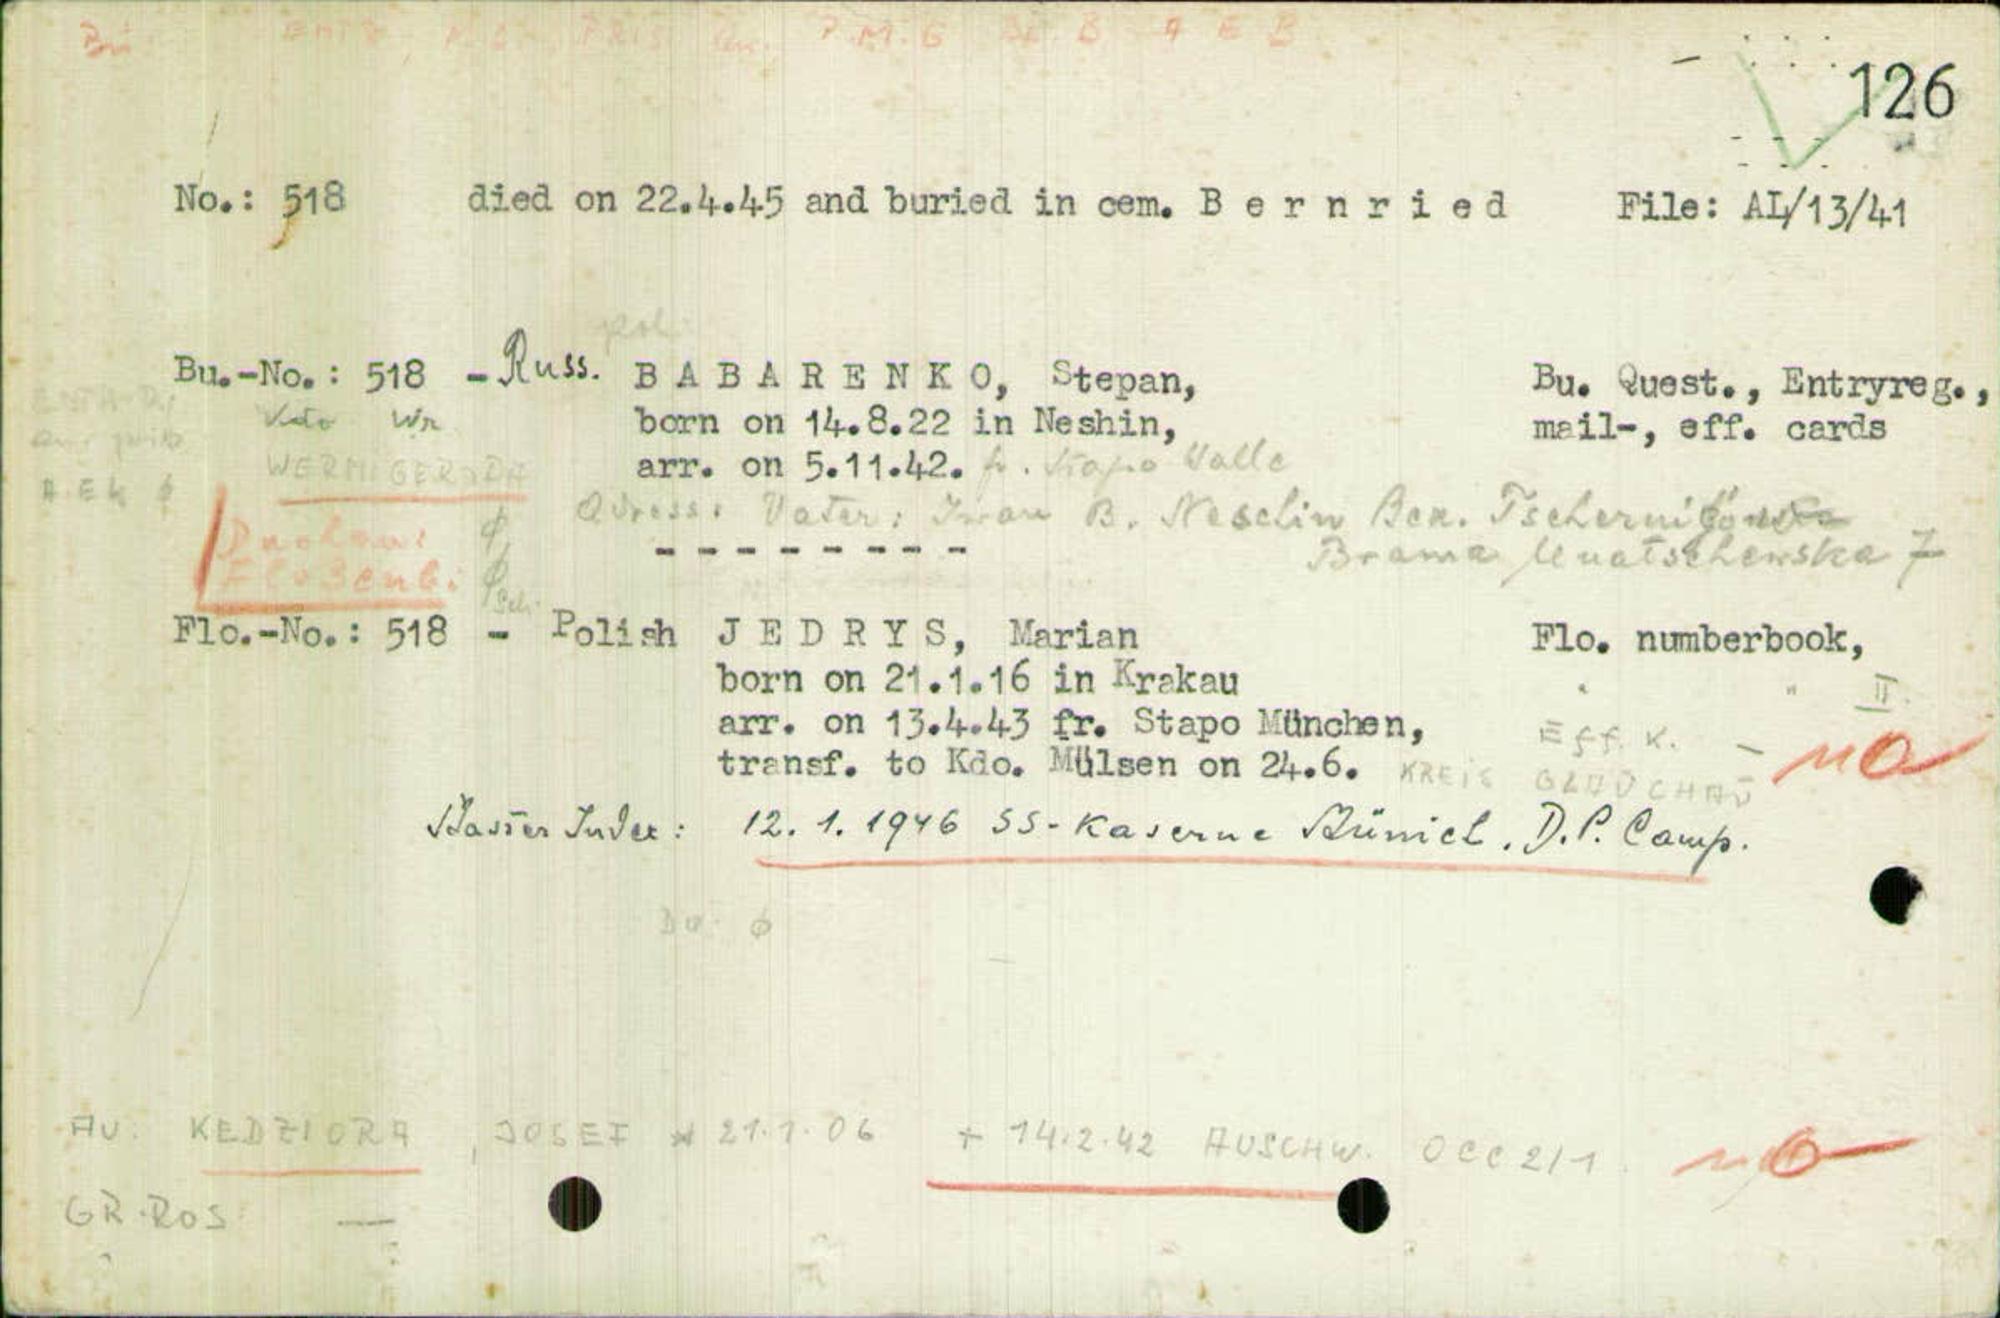 126
No.: 518 died on 22.4.45 and buried in cem. B e r n r i e d File: AL/13/41
pol.
Bu.-No.: 518 - Russ. B A B A R E N K O, Stepan, Bu. Quest., Entryreg.,
Kdo Wr. born on 14.8.22 in Neshin, mail-, eff. cards
WERNIGERODA arr. on 5.11.42. fr. Stapo Halle
Adress: Vater: Iwan B. Neschin Bez.
Brama 7
Flo.-No.: 518 - Polish J E D R Y S, Marian Flo. numberbook,
born on 21.1.16 in Krakau " " II.
arr. on 13.4.43 fr. Stapo München, Eff. K. - no
transf. to Kdo. Mülsen on 24.6. KREIS GLAUCHAU
Master Index: 12.1.1946 SS-Kaserne Münich, D.P. Camp.
Da. ø
AU. KEDZIORA, JOSEF * 21.1.06 + 14.2.42 AUSCHW. OCC 2/1 no
GR.ROS —